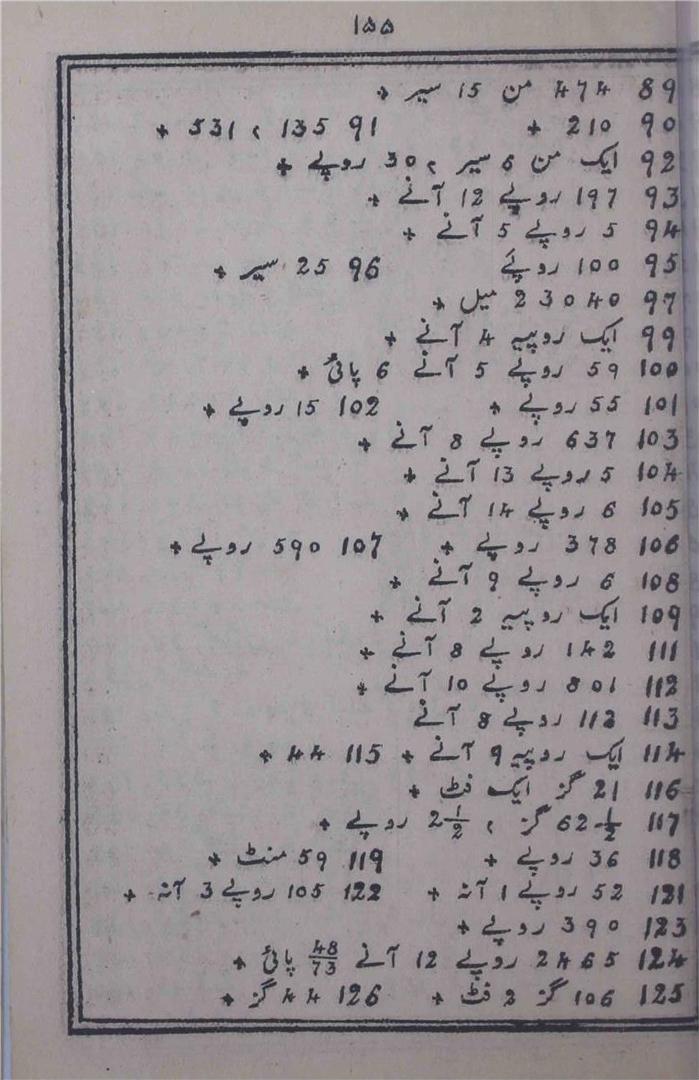 ۱۵۵
89 474 من 15 سیر +
90 210 + 91 135 ، 531 +
92 ایک من 6 سیر ، 30 روپے +
93 197 روپے 12 آنے +
94 5 روپے 5 آنے +
95 100 روپے 96 25 سیر +
97 23040 میل +
99 ایک روپیہ 4 آنے +
100 59 روپے 5 آنے 6 پائی +
101 55 روپے + 102 15 روپے +
103 637 روپے 8 آنے +
104 5 روپے 13 آنے +
105 6 روپے 14 آنے +
106 378 روپے + 107 590 روپے +
108 6 روپے 9 آنے +
109 ایک روپیہ 2 آنے +
111 142 روپے 8 آنے +
112 801 روپے 10 آنے +
113 112 روپے 8 آنے
114 ایک روپیہ 9 آنے + 115 44 +
116 21 گز ایک فٹ +
117 62½ گز ، 2½ روپے +
118 36 روپے + 119 59 منٹ +
121 52 روپے 1 آنہ + 122 105 روپے 3 آنہ +
123 390 روپے +
124 2465 روپے 12 آنے 48/73 پائی +
125 106 گز 2 فٹ + 126 44 گز +